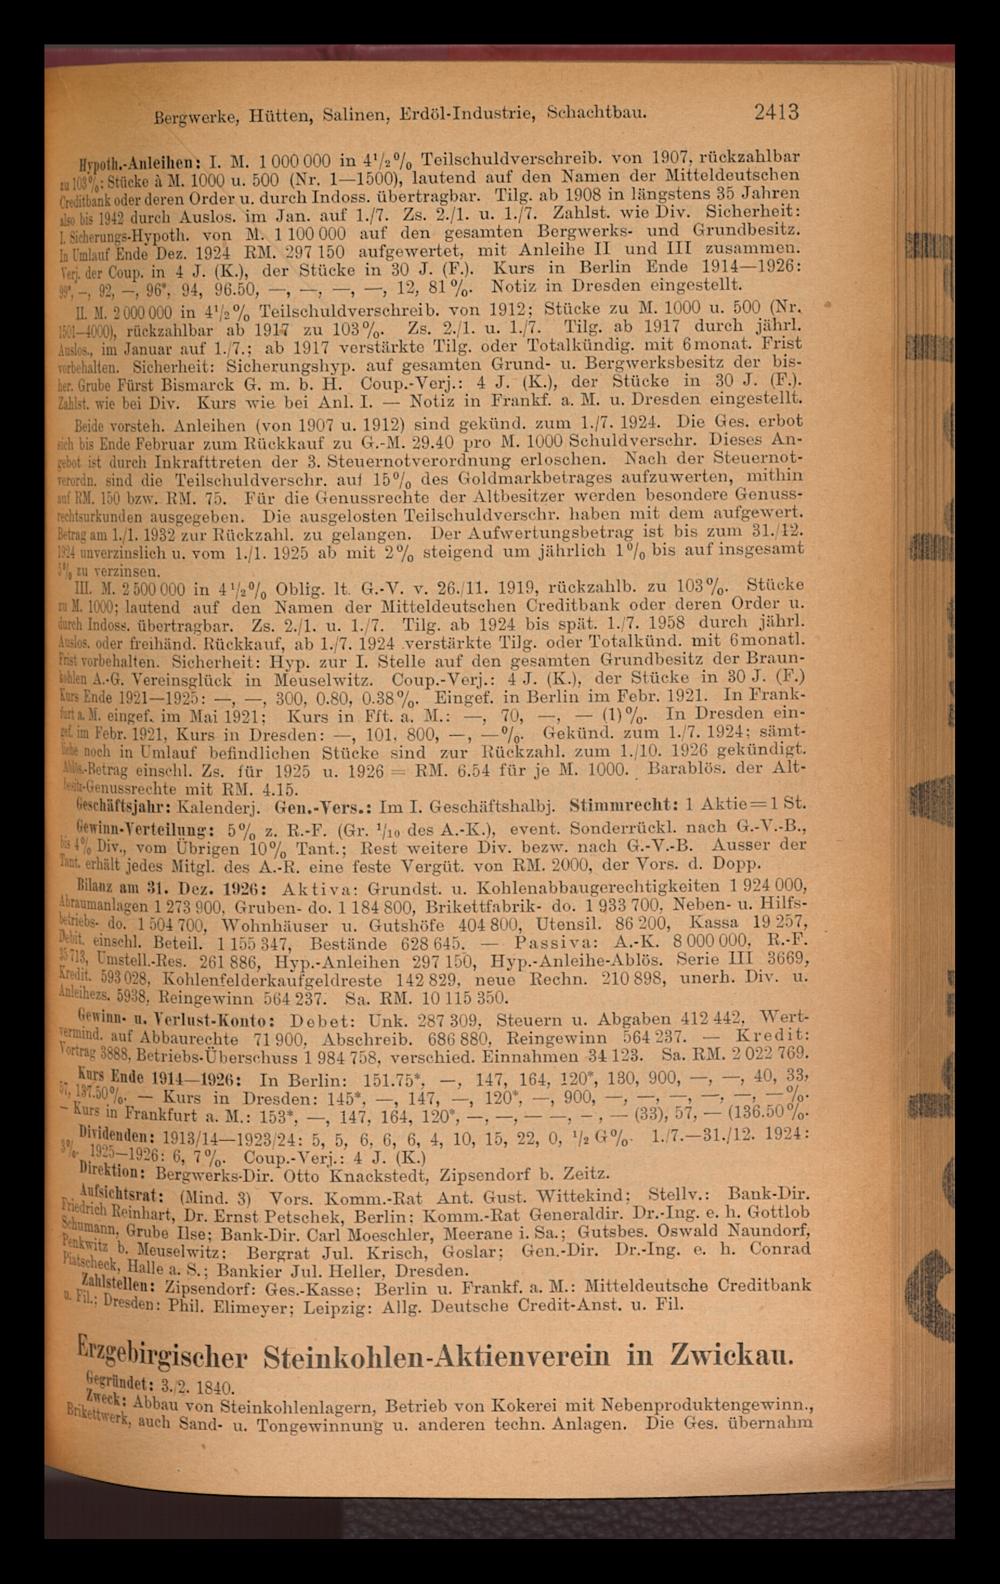 Bergwerke, Hütten, Salinen, Erdöl-Industrie, Schachtbau. 2413
Hypoth.-Anleihen: I. M. 1 000 000 in 4½% Teilschuldverschreib. von 1907, rückzahlbar
zu 103%; Stücke à M. 1000 u. 500 (Nr. 1—1500), lautend auf den Namen der Mitteldeutschen
Creditbank oder deren Order u. durch Indoss. übertragbar. Tilg. ab 1908 in längstens 35 Jahren
also bis 1942 durch Auslos. im Jan. auf 1./7. Zs. 2./1. u. 1./7. Zahlst. wie Div. Sicherheit:
I. Sicherungs-Hypoth. von M. 1 100 000 auf den gesamten Bergwerks- und Grundbesitz.
In Umlauf Ende Dez. 1924 RM. 297 150 aufgewertet, mit Anleihe II und III zusammen.
Verj. der Coup. in 4 J. (K.), der Stücke in 30 J. (F.). Kurs in Berlin Ende 1914—1926:
99*, –, 92, –, 96*, 94, 96.50, —, —, —, —, 12, 81%. Notiz in Dresden eingestellt.
II. M. 2 000 000 in 4½% Teilschuldverschreib. von 1912; Stücke zu M. 1000 u. 500 (Nr.
1501—4000), rückzahlbar ab 1917 zu 103%. Zs. 2./1. u. 1./7. Tilg. ab 1917 durch jährl.
Auslos., im Januar auf 1./7.; ab 1917 verstärkte Tilg. oder Totalkündig. mit 6monat. Frist
vorbehalten. Sicherheit: Sicherungshyp. auf gesamten Grund- u. Bergwerksbesitz der bis-
her. Grube Fürst Bismarck G. m. b. H. Coup.-Verj.: 4 J. (K.), der Stücke in 30 J. (F.).
Zahlst. wie bei Div. Kurs wie bei Anl. I. — Notiz in Frankf. a. M. u. Dresden eingestellt.
Beide vorsteh. Anleihen (von 1907 u. 1912) sind gekünd. zum 1./7. 1924. Die Ges. erbot
sich bis Ende Februar zum Rückkauf zu G.-M. 29.40 pro M. 1000 Schuldverschr. Dieses An-
gebot ist durch Inkrafttreten der 3. Steuernotverordnung erloschen. Nach der Steuernot-
verordn. sind die Teilschuldverschr. auf 15% des Goldmarkbetrages aufzuwerten, mithin
auf RM. 150 bzw. RM. 75. Für die Genussrechte der Altbesitzer werden besondere Genuss-
rechtsurkunden ausgegeben. Die ausgelosten Teilschuldverschr. haben mit dem aufgewert.
Betrag am 1./1. 1932 zur Rückzahl. zu gelangen. Der Aufwertungsbetrag ist bis zum 31./12.
1924 unverzinslich u. vom 1./1. 1925 ab mit 2% steigend um jährlich 1% bis auf insgesamt
5% zu verzinsen.
III. M. 2 500 000 in 4½% Oblig. lt. G.-V. v. 26./11. 1919, rückzahlb. zu 103%. Stücke
zu M. 1000; lautend auf den Namen der Mitteldeutschen Creditbank oder deren Order u.
durch Indoss. übertragbar. Zs. 2./1. u. 1./7. Tilg. ab 1924 bis spät. 1./7. 1958 durch jährl.
Auslos. oder freihänd. Rückkauf, ab 1./7. 1924 verstärkte Tilg. oder Totalkünd. mit 6monatl.
Frist vorbehalten. Sicherheit: Hyp. zur I. Stelle auf den gesamten Grundbesitz der Braun-
kohlen A.-G. Vereinsglück in Meuselwitz. Coup.-Verj.: 4 J. (K.), der Stücke in 30 J. (F.)
Kurs Ende 1921—1925: —, —, 300, 0.80, 0.38%. Eingef. in Berlin im Febr. 1921. In Frank-
furt a. M. eingef. im Mai 1921; Kurs in Fft. a. M.: —, 70, —, — (1)%. In Dresden ein-
gef. im Febr. 1921, Kurs in Dresden: —, 101, 800, —, —%. Gekünd. zum 1./7. 1924; sämt-
liche noch in Umlauf befindlichen Stücke sind zur Rückzahl. zum 1./10. 1926 gekündigt.
Ablös.-Betrag einschl. Zs. für 1925 u. 1926 = RM. 6.54 für je M. 1000. Barablös. der Alt-
besitz-Genussrechte mit RM. 4.15.
Geschäftsjahr: Kalenderj. Gen.-Vers.: Im I. Geschäftshalbj. Stimmrecht: 1 Aktie = 1 St.
Gewinn-Verteilung: 5% z. R.-F. (Gr. 1/10 des A.-K.), event. Sonderrückl. nach G.-V.-B.,
bis 4% Div., vom Übrigen 10% Tant.; Rest weitere Div. bezw. nach G.-V.-B. Ausser der
Tant. erhält jedes Mitgl. des A.-R. eine feste Vergüt. von RM. 2000, der Vors. d. Dopp.
Bilanz am 31. Dez. 1926: Aktiva: Grundst. u. Kohlenabbaugerechtigkeiten 1 924 000,
Abraumanlagen 1 273 900, Gruben- do. 1 184 800, Brikettfabrik- do. 1 933 700, Neben- u. Hilfs-
betriebs- do. 1 504 700, Wohnhäuser u. Gutshöfe 404 800, Utensil. 86 200, Kassa 19 257,
Debit. einschl. Beteil. 1 155 347, Bestände 628 645. — Passiva: A.-K. 8 000 000, R.-F.
35 713, Umstell.-Res. 261 886, Hyp.-Anleihen 297 150, Hyp.-Anleihe-Ablös. Serie III 3669,
Kredit. 593 028, Kohlenfelderkaufgeldreste 142 829, neue Rechn. 210 898, unerh. Div. u.
Anleihezs. 5938, Reingewinn 564 237. Sa. RM. 10 115 350.
Gewinn- u. Verlust-Konto: Debet: Unk. 287 309, Steuern u. Abgaben 412 442, Wert-
vermind. auf Abbaurechte 71 900, Abschreib. 686 880, Reingewinn 564 237. — Kredit:
Vortrag 3888, Betriebs-Überschuss 1 984 758, verschied. Einnahmen 34 123. Sa. RM. 2 022 769.
Kurs Ende 1914—1926: In Berlin: 151.75*, —, 147, 164, 120*, 130, 900, —, —, 40, 33,
57, 137.50%. — Kurs in Dresden: 145*, —, 147, —, 120*, —, 900, —, —, —, —, —, —%.
— Kurs in Frankfurt a. M.: 153*, —, 147, 164, 120*, —, —, — —, – , — (33), 57, — (136.50%.
Dividenden: 1913/14—1923/24: 5, 5, 6, 6, 6, 4, 10, 15, 22, 0, ½ G%. 1./7.—31./12. 1924:
3%. 1925—1926: 6, 7%. Coup.-Verj.: 4 J. (K.)
Direktion: Bergwerks-Dir. Otto Knackstedt, Zipsendorf b. Zeitz.
Aufsichtsrat: (Mind. 3) Vors. Komm.-Rat Ant. Gust. Wittekind; Stellv.: Bank-Dir.
Friedrich Reinhart, Dr. Ernst Petschek, Berlin; Komm.-Rat Generaldir. Dr.-Ing. e. h. Gottlob
Schumann, Grube Ilse; Bank-Dir. Carl Moeschler, Meerane i. Sa.; Gutsbes. Oswald Naundorf,
Penkwitz b. Meuselwitz; Bergrat Jul. Krisch, Goslar; Gen.-Dir. Dr.-Ing. e. h. Conrad
Piatscheck, Halle a. S.; Bankier Jul. Heller, Dresden.
Zahlstellen: Zipsendorf: Ges.-Kasse; Berlin u. Frankf. a. M.: Mitteldeutsche Creditbank
u. Fil.; Dresden: Phil. Elimeyer; Leipzig: Allg. Deutsche Credit-Anst. u. Fil.
Erzgebirgischer Steinkohlen-Aktienverein in Zwickau.
Gegründet: 3./2. 1840.
Zweck: Abbau von Steinkohlenlagern, Betrieb von Kokerei mit Nebenproduktengewinn.,
Brikettwerk, auch Sand- u. Tongewinnung u. anderen techn. Anlagen. Die Ges. übernahm